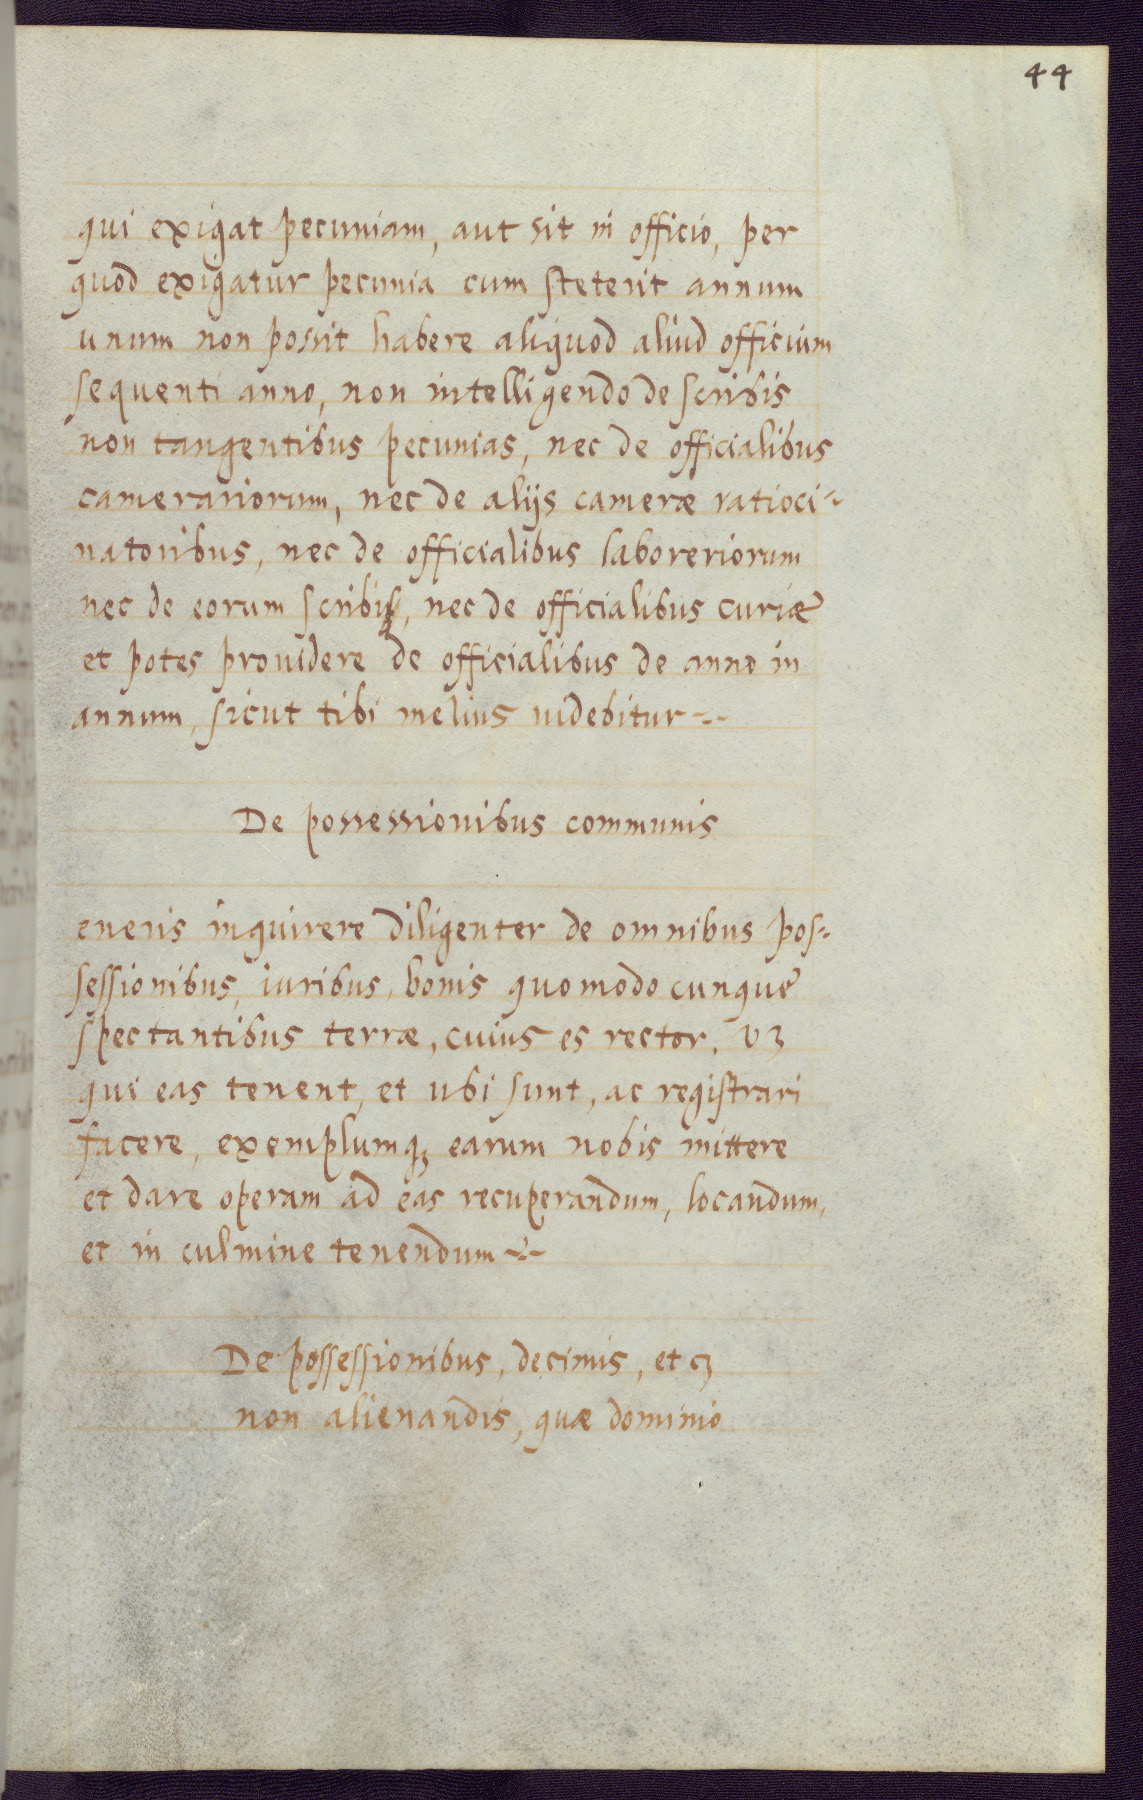 44
qui exigat pecuniam, aut sit in officio, per
quod exigatur pecunia cum steterit annum
unum non possit habere aliquod aliud officium
sequenti anno, non intelligendo de scribis
non tangentibus pecunias, nec de officialibus
camerariorum, nec de alijs cameræ ratioci-
natoribus, nec de officialibus laboreriorum
nec de eorum scribis, nec de officialibus curiæ
et potes prouidere de officialibus de anno in
annum, sicut tibi melius uidebitur
De possessionibus communis
eneris inquirere diligenter de omnibus pos-
sessionibus, iuribus, bonis quomodocunque
spectantibus terræ, cuius es rector. vꝫ
qui eas tenent, et ubi sunt, ac registrari
facere, exemplumqꝫ earum nobis mittere
et dare operam ad eas recuperandum, locandum,
et in culmine tenendum
De possessionibus, decimis, et cꝫ
non alienandis, quæ dominio